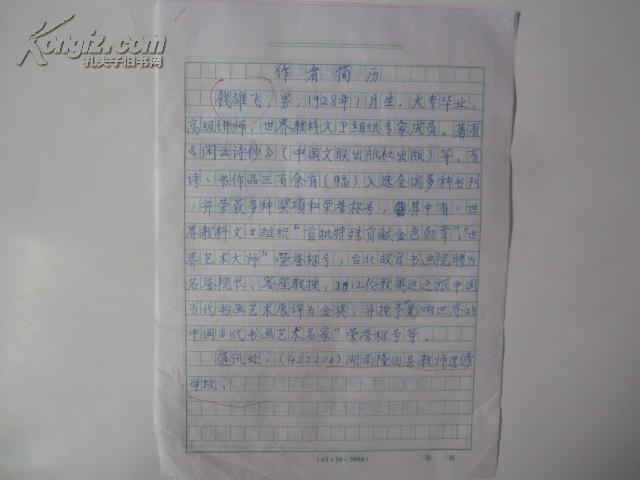 Kongfz.com
孔夫子旧书网
作者简历
钱雄飞，男，1928年1月生，大专毕业，
高级讲师，世界教科文卫组织专家成员。著有
《闲云诗钞》（中国文联出版社出版）等。有
诗、书作品三百余首（幅）入选全国多种书刊
，并荣获多种奖项和荣誉称号，其中有：世
界教科文卫组织“首批特殊贡献金色勋章”，“世
界艺术大师”荣誉称号，台北故宫书画院聘为
名誉院长、客座教授，2012伦敦奥运之旅中国
当代书画艺术展评为金奖，并授予“影响世界的
中国当代书画艺术名家”荣誉称号等。
通讯处：（422200）湖南隆回县教师进修
学校。
（15×20＝300）
第 页